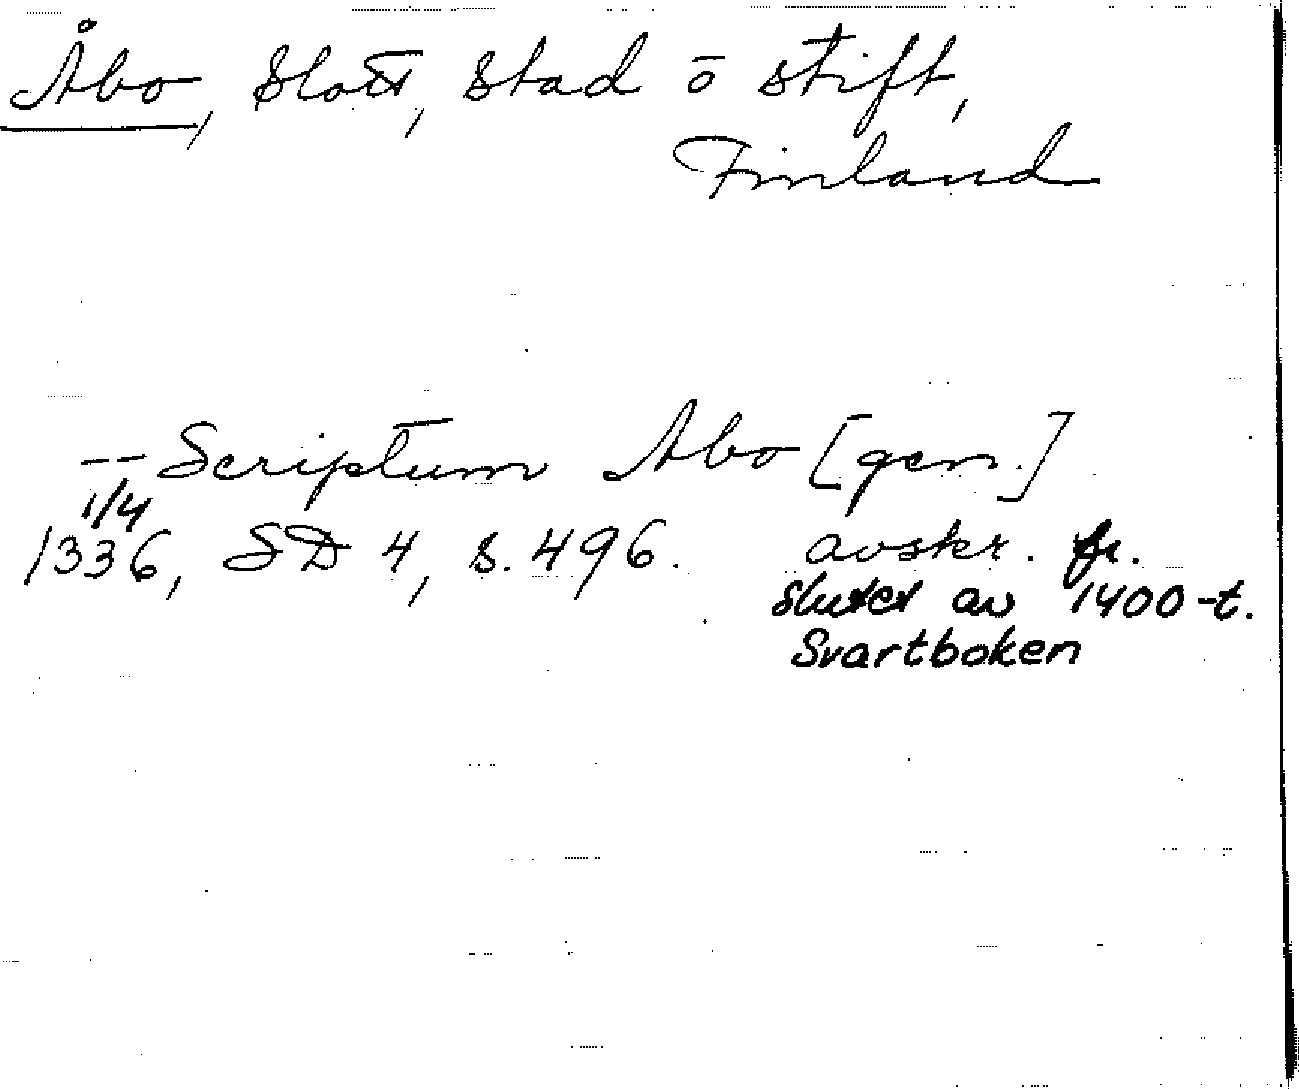 Åbo, Slott, Stad o stift,
Finland
-- Scriptum Abo [gen.]
1/4
1336, SD 4, s. 496. avskr. fr.
slutet av 1400-t.
Svartboken